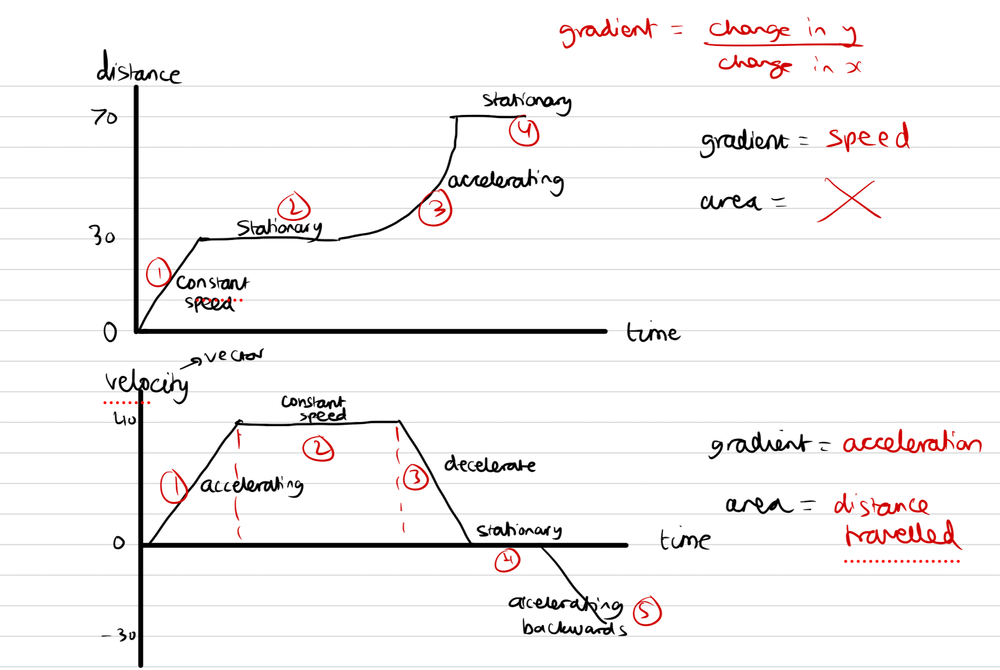 gradient = change in y
change in x
distance
70
stationary
4
gradient = speed
accelerating
3
area = X
2
30
stationary
1
constant
speed
0
time
→ vector
velocity
40
constant
speed
2
gradient = acceleration
decelerate
3
1
accelerating
area = distance
travelled
stationary
0
time
4
accelerating
5
backwards
-30